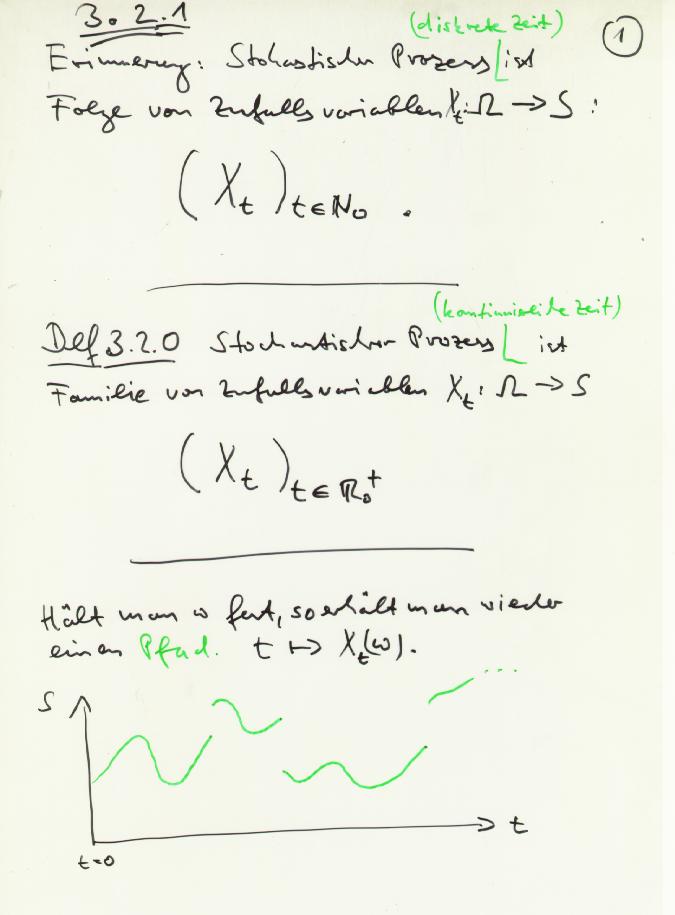 3.2.1
(diskrete Zeit)
①
Erinnerung: Stochastischer Prozess ist
Folge von Zufallsvariablen Xₜ: Ω → S :
(Xₜ)ₜ∈ℕ₀ .
(kontinuierliche Zeit)
Def 3.2.0 Stochastischer Prozess ist
Familie von Zufallsvariablen Xₜ: Ω → S
(Xₜ)ₜ∈ℝ₀⁺
Hält man ω fest, so erhält man wieder
einen Pfad. t ↦ Xₜ(ω).
S
...
t
t=0